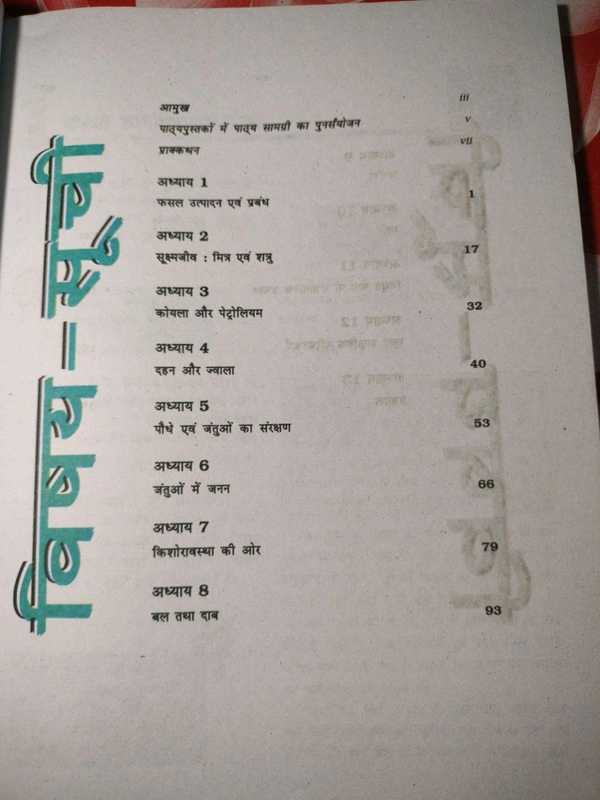 विषय-सूची
आमुख iii
पाठ्यपुस्तकों में पाठ्य सामग्री का पुनर्संयोजन v
प्राक्कथन vii
अध्याय 1
फसल उत्पादन एवं प्रबंध 1
अध्याय 2
सूक्ष्मजीव : मित्र एवं शत्रु 17
अध्याय 3
कोयला और पेट्रोलियम 32
अध्याय 4
दहन और ज्वाला 40
अध्याय 5
पौधे एवं जंतुओं का संरक्षण 53
अध्याय 6
जंतुओं में जनन 66
अध्याय 7
किशोरावस्था की ओर 79
अध्याय 8
बल तथा दाब 93